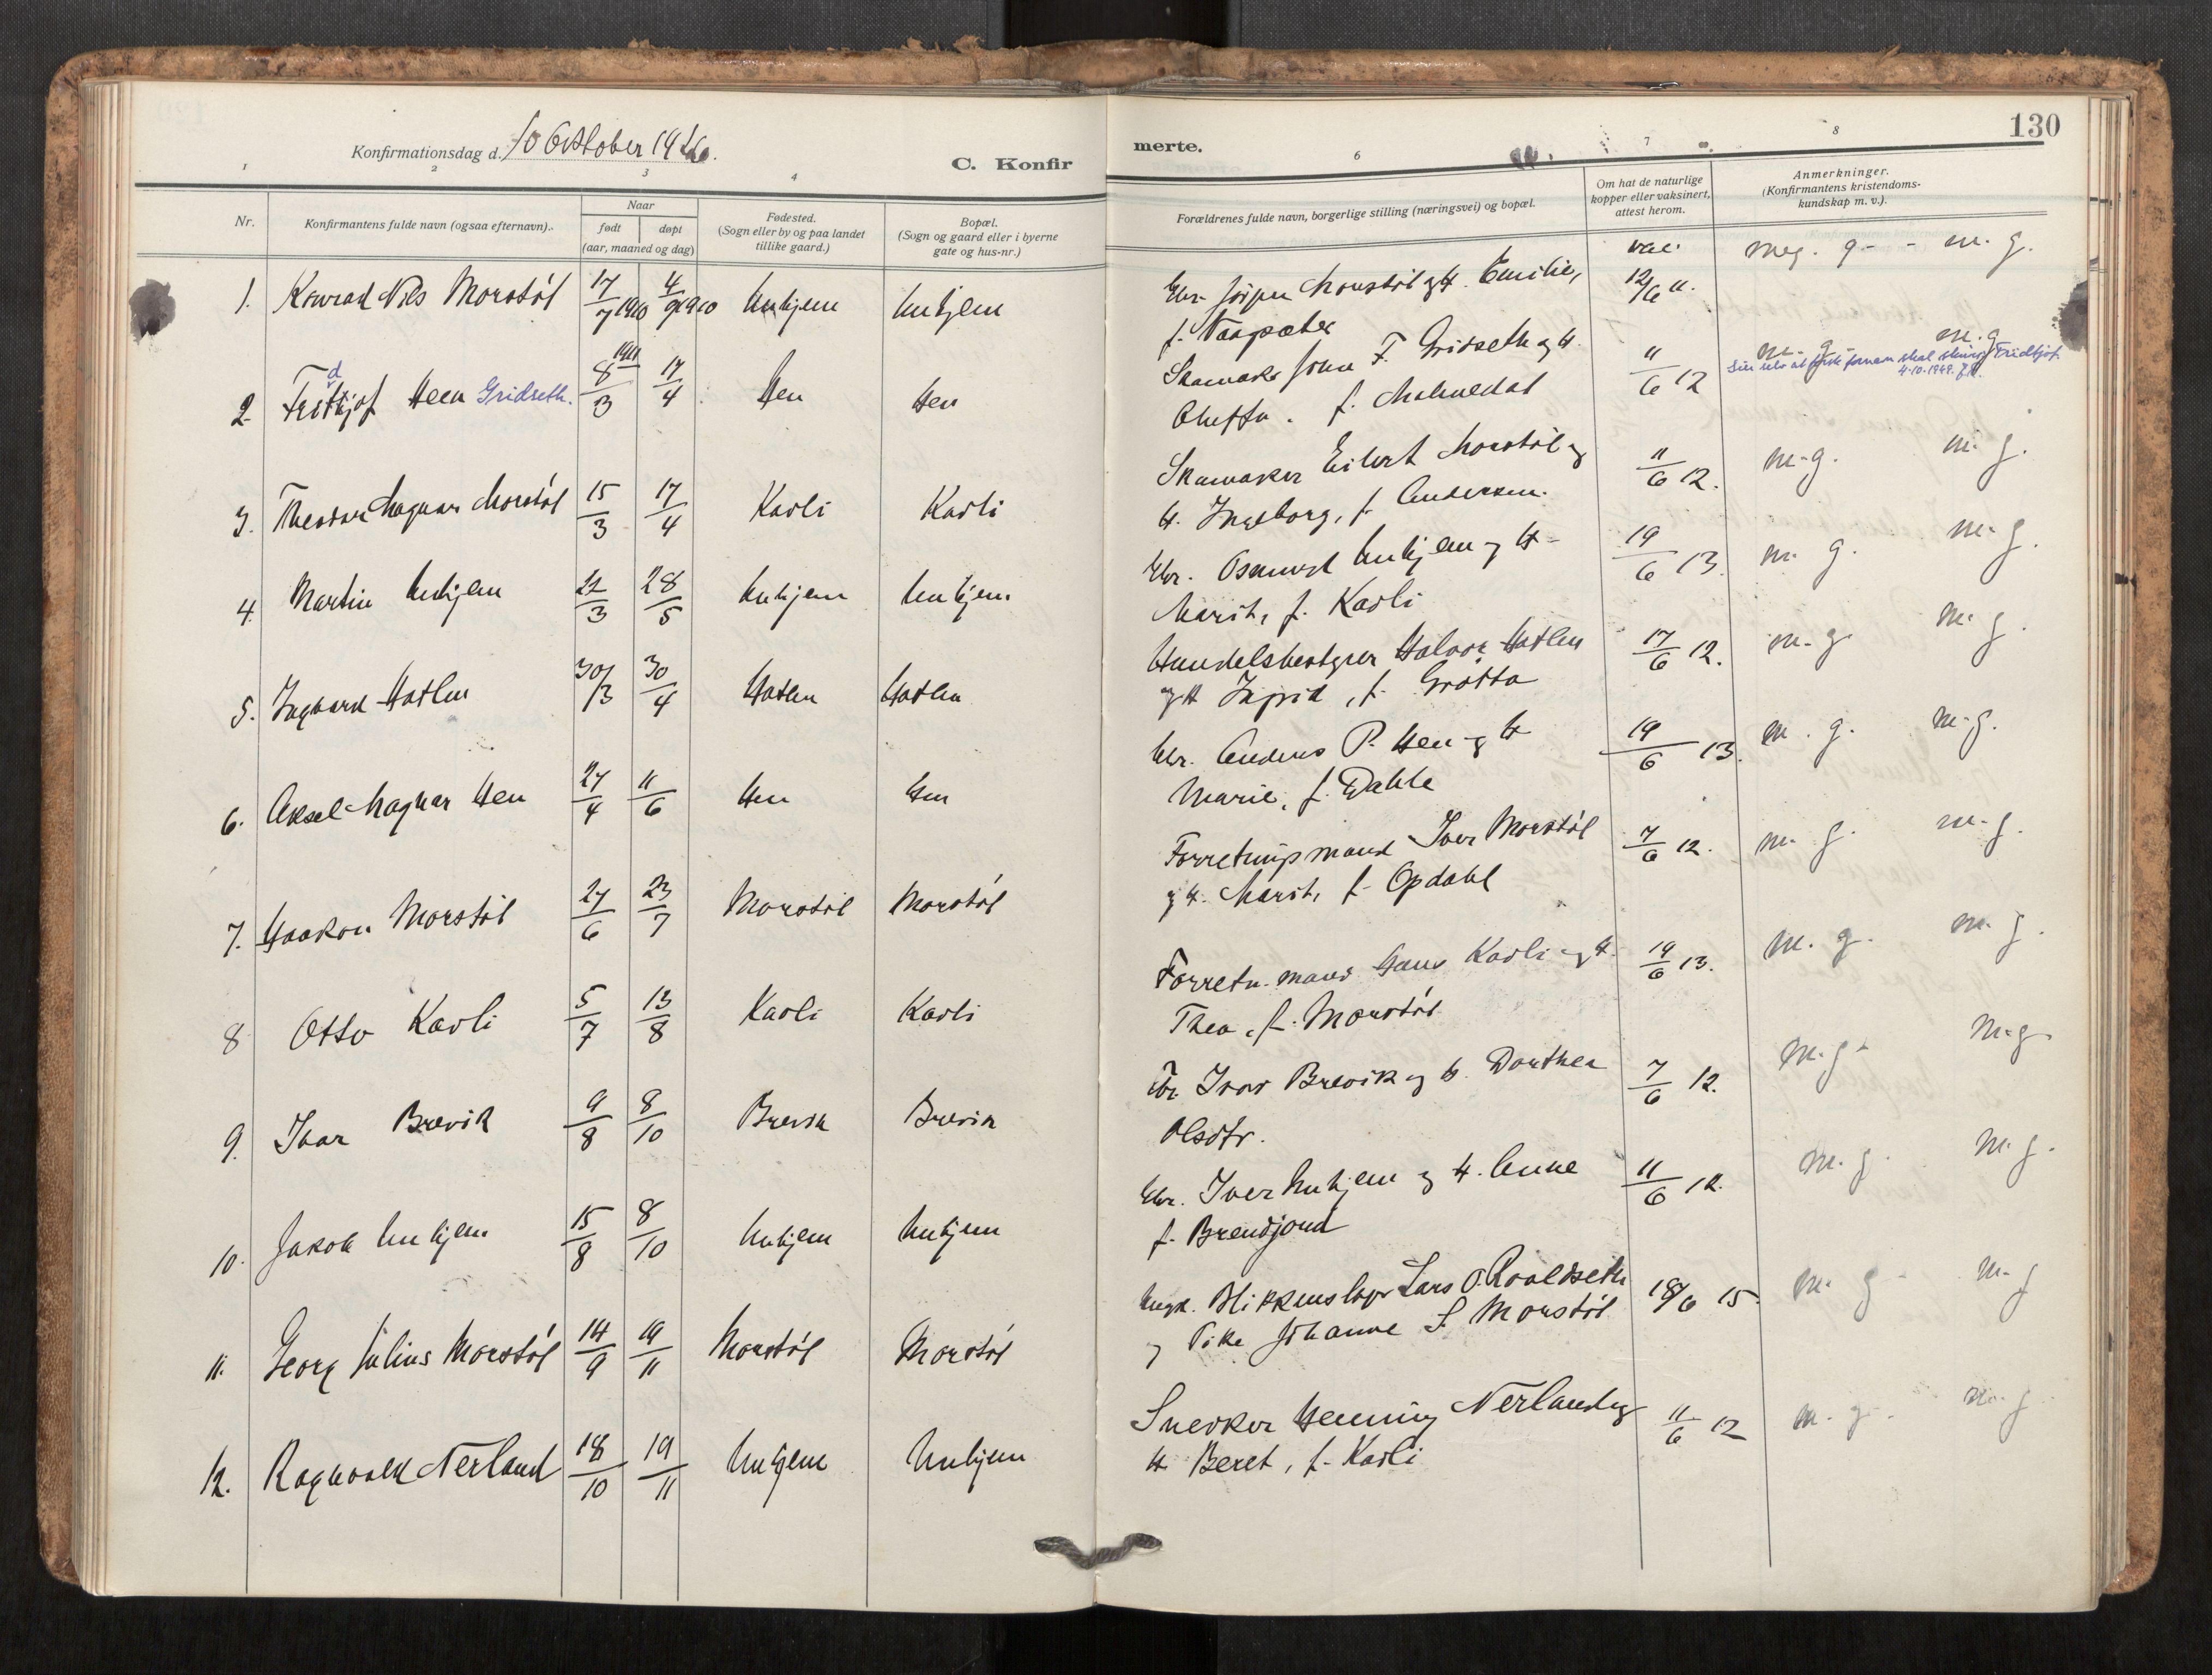 130
Konfirmationsdag d. 10 Oktober 1926.
C. Konfir
merte.
1 2 3 4 6 7 8
Nr.
Konfirmantens fulde navn (ogsaa efternavn).
Naar
født
døpt
(aar, maaned og dag)
Fødested.
(Sogn eller by og paa landet
tillike gaard.)
Bopæl.
(Sogn og gaard eller i byerne
gate og hus-nr.)
Forældrenes fulde navn, borgerlige stilling (næringsvei) og bopæl.
Om hat de naturlige
kopper eller vaksinert,
attest herom.
Anmerkninger.
(Konfirmantens kristendoms-
kundskap m. v.).
1. Konrad Nils Morstøl 17/7 1910 4/9 1910 Innhjem Innhjem
Gbr. Jørgen Morstøl og H. Emilie, vac. 12/6 11. meg. g - - m. g.
f. Vaagsæter
2. Fridtjof Heen Gridseth. 1911 8/3 17/4 Hen Hen
Skomaker John F. Gridseth og H. 11/6 12 m. g. m. g.
f. Malmedal
4-10-1949.
3. Theodor Magnar Morstøl 15/3 17/4 Kavli Kavli
Skomaker Eilert Morstøl og 11/6 12. m. g. m. g.
H. Ingeborg, f. Andersen.
4. Martin Innhjem 22/3 28/5 Innhjem Innhjem
Gbr. Osmund Innhjem og H. 19/6 13. m. g. m. g.
Marit, f. Kavli
5. Ingvard Hatlen 30/3 30/4 Hatlen Hatlen
Handelsbestyrer Halvor Hatlen 17/6 12. m. g. m. g.
og H Ingrid, f. Grøtta
6. Aksel Magnar Hen 27/4 11/6 Hen Hen
Gbr. Anders P. Hen og H 19/6 13. m. g. m. g.
Marie, f. Dahle
7. Haakon Morstøl 27/6 23/7 Morstøl Morstøl
Forretningsmand Iver Morstøl 7/6 12. m. g. m. g.
og H. Marit, f. Opdahl
8 Otto Kavli 5/7 13/8 Kavli Kavli
Forretn. mand Hans Kavli og H. 19/6 13. m. g. m. g.
Thea, f. Morstøl
9. Ivar Brevik 9/8 8/10 Brevik Brevik
Gbr. Ivar Brevik og H. Dorthea 7/6 12. m. g. m. g.
Olsdtr.
10. Jakob Innhjem 15/8 8/10 Innhjem Innhjem
Gbr. Iver Innhjem og H. Anne 11/6 12. m. g. m. g.
f. Brendjord
11. Georg Julius Morstøl 14/9 19/11 Morstøl Morstøl
Ungk. Blikkenslager Lars O. Roaldseth 18/6 15. m. g. m. g
og Pike Johanne S. Morstøl
12. Ragnvald Nerland 18/10 19/11 Innhjem Innhjem
Snedker Henning Nerland og 11/6 12 m. g. m. g
H. Beret, f. Kavli